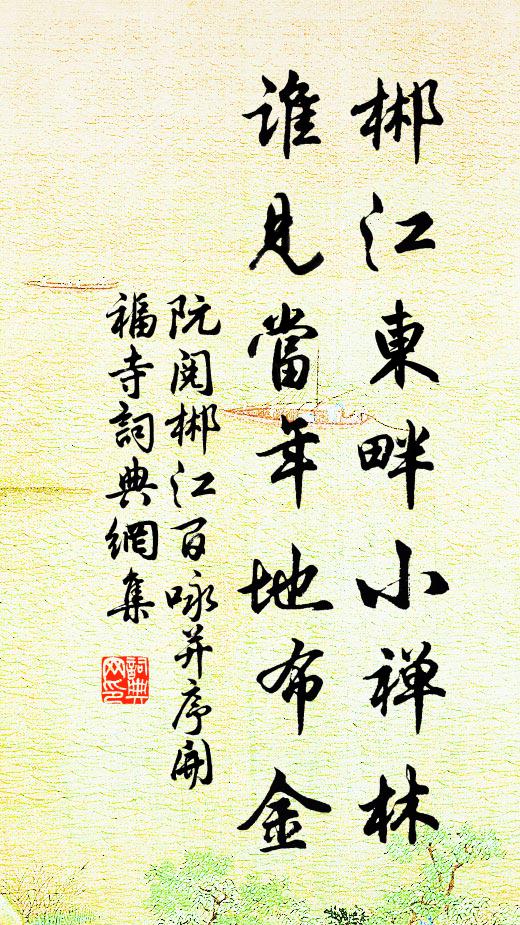 郴江東畔小禅林
誰見當年地布金
阮閱郴江百咏并序開
福寺詞典網集
詞典
网印